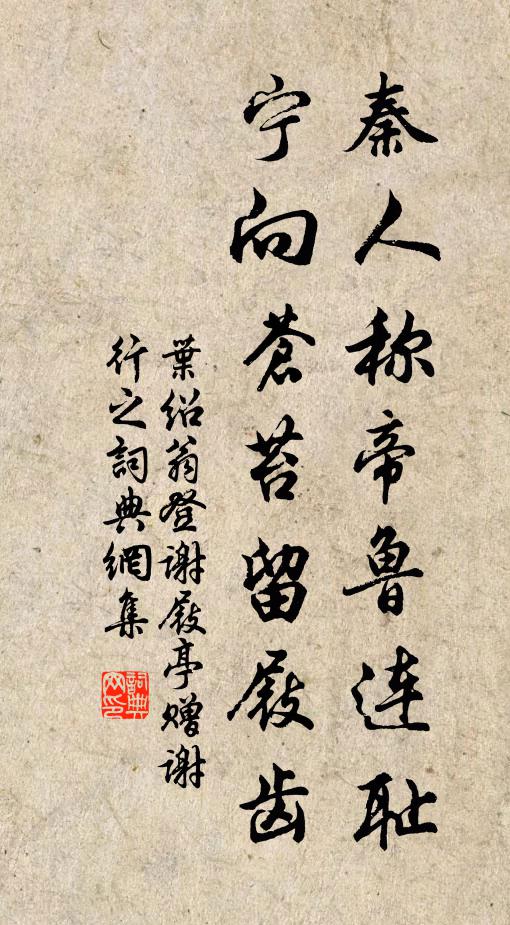 秦人称帝鲁连耻
宁向苍苔留屐齿
葉绍翁登谢屐亭赠谢
行之詞典網集
詞典
网印